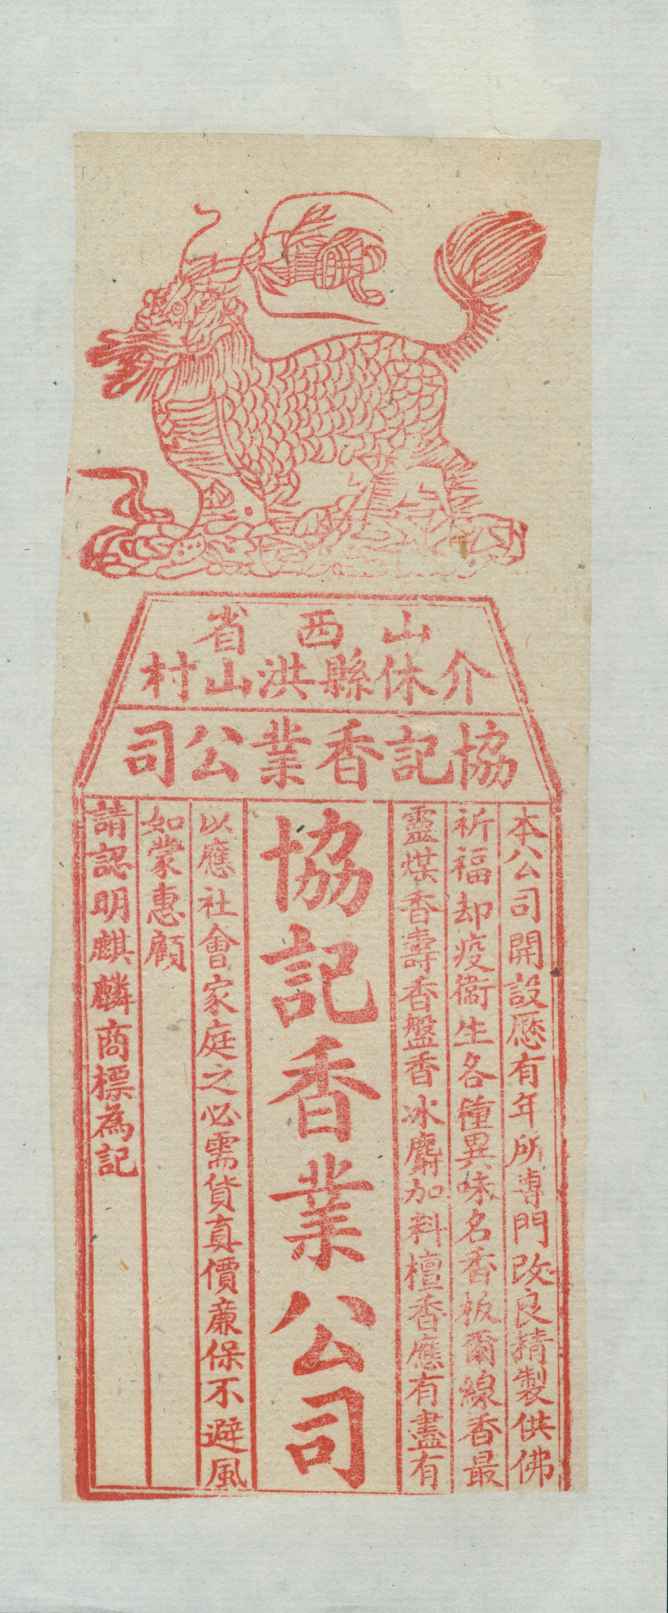 山西省
介休縣洪山村
協記香業公司
本公司開設歷有年所專門改良精製供佛
祈福却疫衞生各種異味名香板蘭線香最
靈煤香壽香盤香冰麝加料檀香應有盡有
協記香業公司
以應社會家庭之必需貨真價廉保不避風
如蒙惠顧
請認明麒麟商標為記